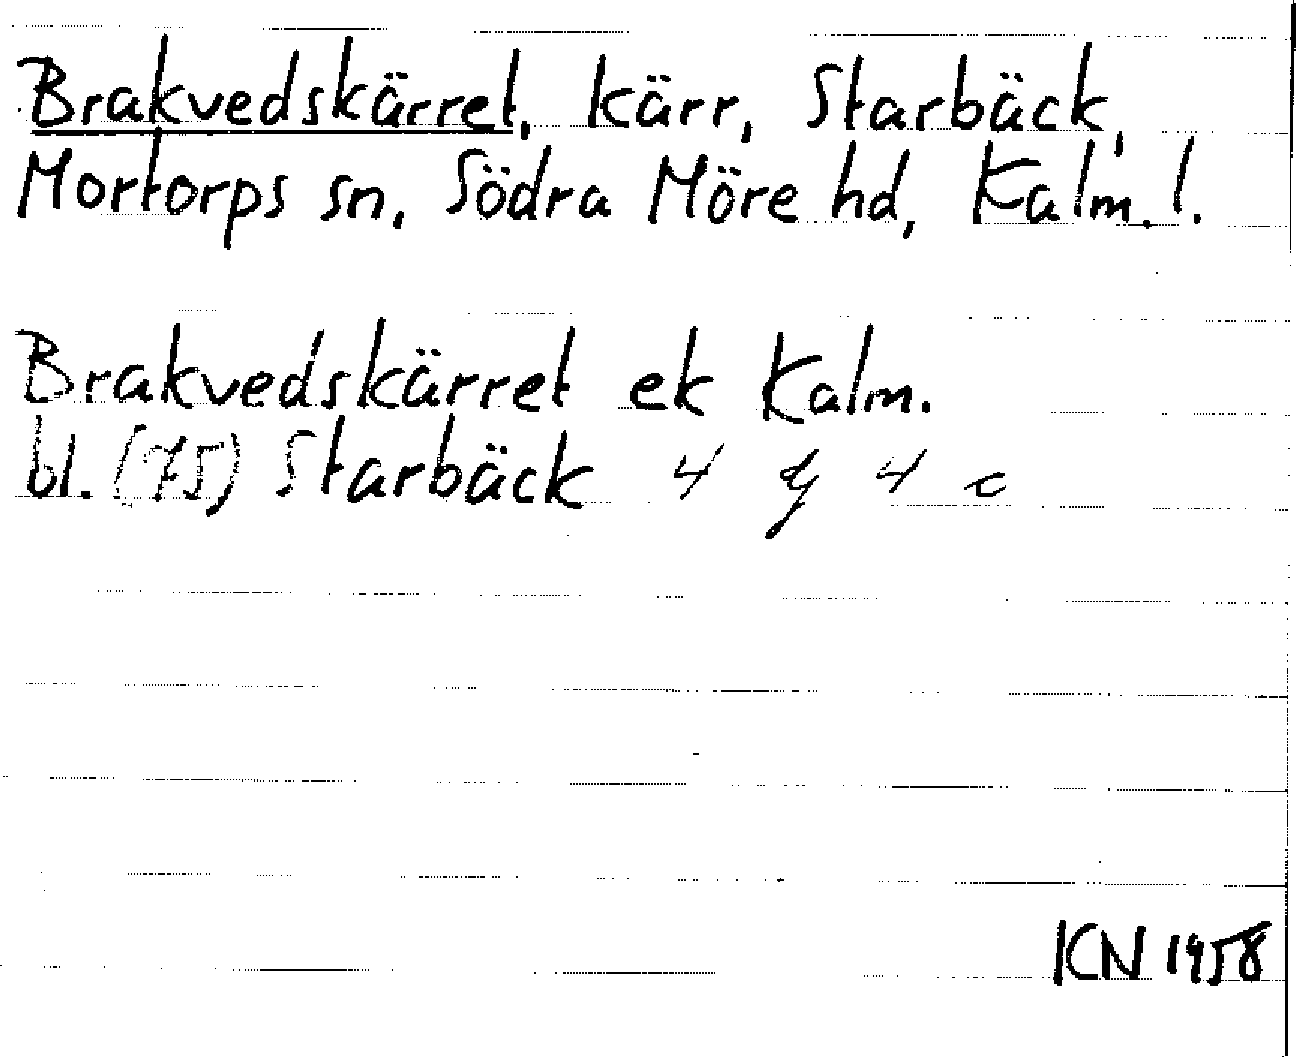 Brakvedskärret, kärr, Starbäck,
Mortorps sn, Södra Möre hd, Kalm. l.
Brakvedskärret ek Kalm.
bl. (75) Starbäck 4 4 c
KN 1958